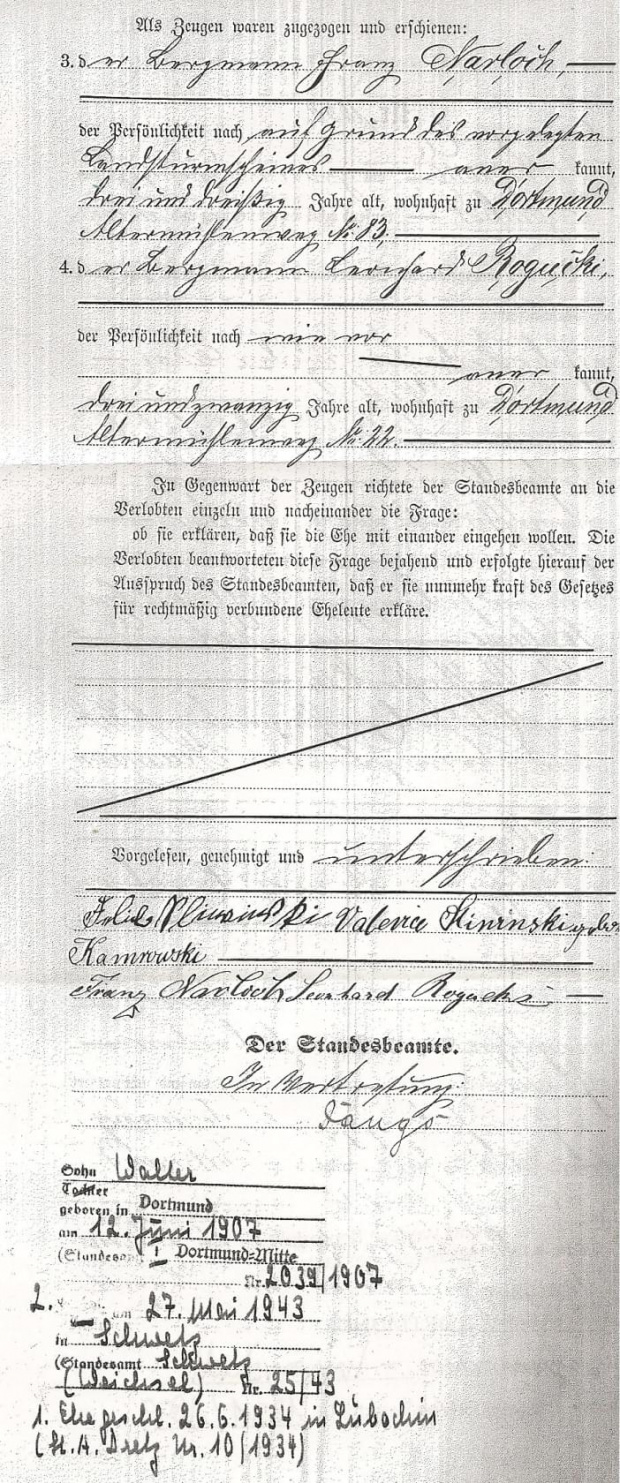 Als Zeugen waren zugezogen und erschienen:
3. der Bergmann Franz Narloch,
der Persönlichkeit nach auf Grund des vorgelegten
Landsturmscheines aner kannt,
drei und dreißig Jahre alt, wohnhaft zu Dortmund
Altermühlenweg No. 83,
4. der Bergmann Leonhard Rogucki,
der Persönlichkeit nach wie vor
aner kannt,
drei und zwanzig Jahre alt, wohnhaft zu Dortmund
Altermühlenweg No. 22.
In Gegenwart der Zeugen richtete der Standesbeamte an die
Verlobten einzeln und nacheinander die Frage:
ob sie erklären, daß sie die Ehe mit einander eingehen wollen. Die
Verlobten beantworteten diese Frage bejahend und erfolgte hierauf der
Ausspruch des Standesbeamten, daß er sie nunmehr kraft des Gesetzes
für rechtmäßig verbundene Eheleute erkläre.
Vorgelesen, genehmigt und unterschrieben:
Felix Sliwinski
Kamrowski
Franz Narloch Leonhard Rogucki
Der Standesbeamte.
In Vertretung:
Sohn Walter
Tochter
geboren in Dortmund
am 12. Juni 1907
(Standesamt I Dortmund-Mitte
Nr. 2039/1907
2. am 27. Mai 1943
in Schwetz
(Standesamt Schwetz
(Weichsel) Nr. 25/43
1. Ehe geschl. 26.6.1934 in Lubochin
(St. A. Nr. 10/1934)